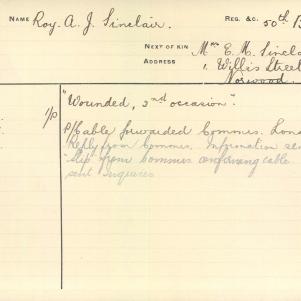 NAME Roy. A. J. Sinclair. REG. &c. 50th B
NEXT OF KIN Mrs E. M. Sincla
ADDRESS 1. Willis Street
Norwood.
"Wounded, 2nd occasion".
P/Cable forwarded Commis. Lond
Reply from Commis. Information se
Slip from Commis confirming cable
sent inquirer